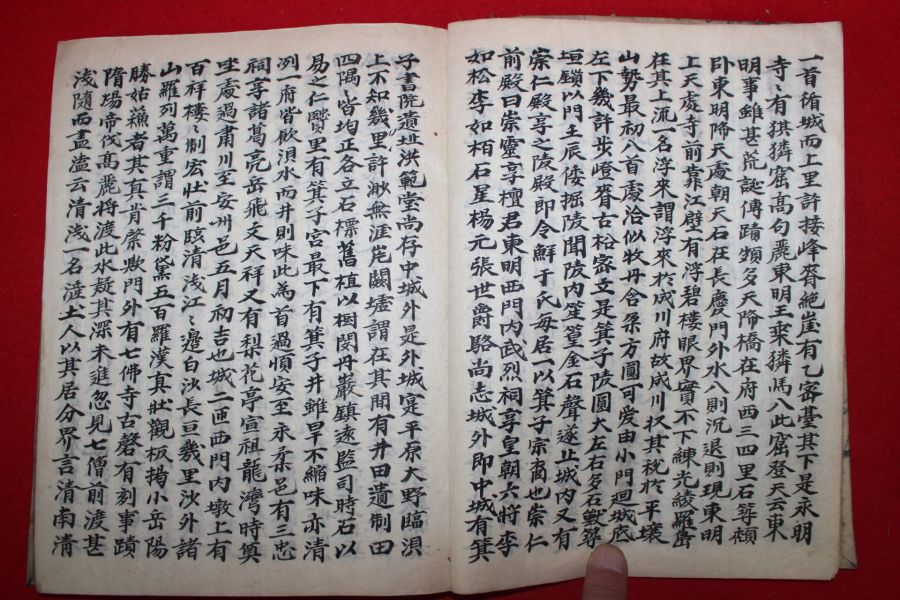 一首循城而上里許接峰脊絶崖有乙密臺其下是永明
寺〻有猉獜窟高句麗東明王乘獜馬八此窟登天云東
明事雖甚荒誕傳蹟頗多天降橋在府西三四里石䔿頗
卧東明降天處朝天石在長慶門外水八則沉退則現東明
上天處寺前靠江壁有浮碧樓眼界實不下練光綾羅島
在其上流一名浮來謂浮來於成川府故成川収其稅於平壤
山勢最初八首處洽似牧丹含蘂方圓可爱由小門迴城底
左下幾許步嶝脊古松密立是箕子陵圓大左右多石獸䔿
垣鎖以門土辰倭掘陵聞陵内笙篁金石聲遂止城内又有
崇仁殿享之陵殿即令鮮于氏每居一以箕子宗裔也崇仁
前殿曰崇靈享檀君東明西門内武烈祠享皇朝六將李
如松李如栢石星楊元張世爵駱尚志城外即中城有箕
子書院遺址洪範堂尚存中城外是外城寔平原大野臨浿
上不知幾里許渺無涯岸闕墟謂在其間有井田遺制田
四隅〻皆均正各立石標舊植以樹閔丹巖鎮速監司時石以
易之仁賢里有箕子宮最下有箕子井雖旱不縮味亦清
冽一府皆飲浿水而井則味此為首過順安至永柔邑有三忠
祠享諸葛亮岳飛文天祥又有梨花亭宣祖龍灣時奠
坐處過肅川至安州邑五月初吉也城二匝西門内墩上有
百祥樓〻制宏壯前臨清浅江〻邊白沙長亘幾里沙外諸
山羅列萬重謂三千粉黛五百羅漢真壯觀板揭小岳陽
勝姑蘓者其真肯綮歟門外有七佛寺古磬有刻事蹟
隋煬帝伐髙麗将渡此水疑其深未進忽見七僧前渡甚
浅隨而盡溘云清浅一名淮土人以其居分界言清南清